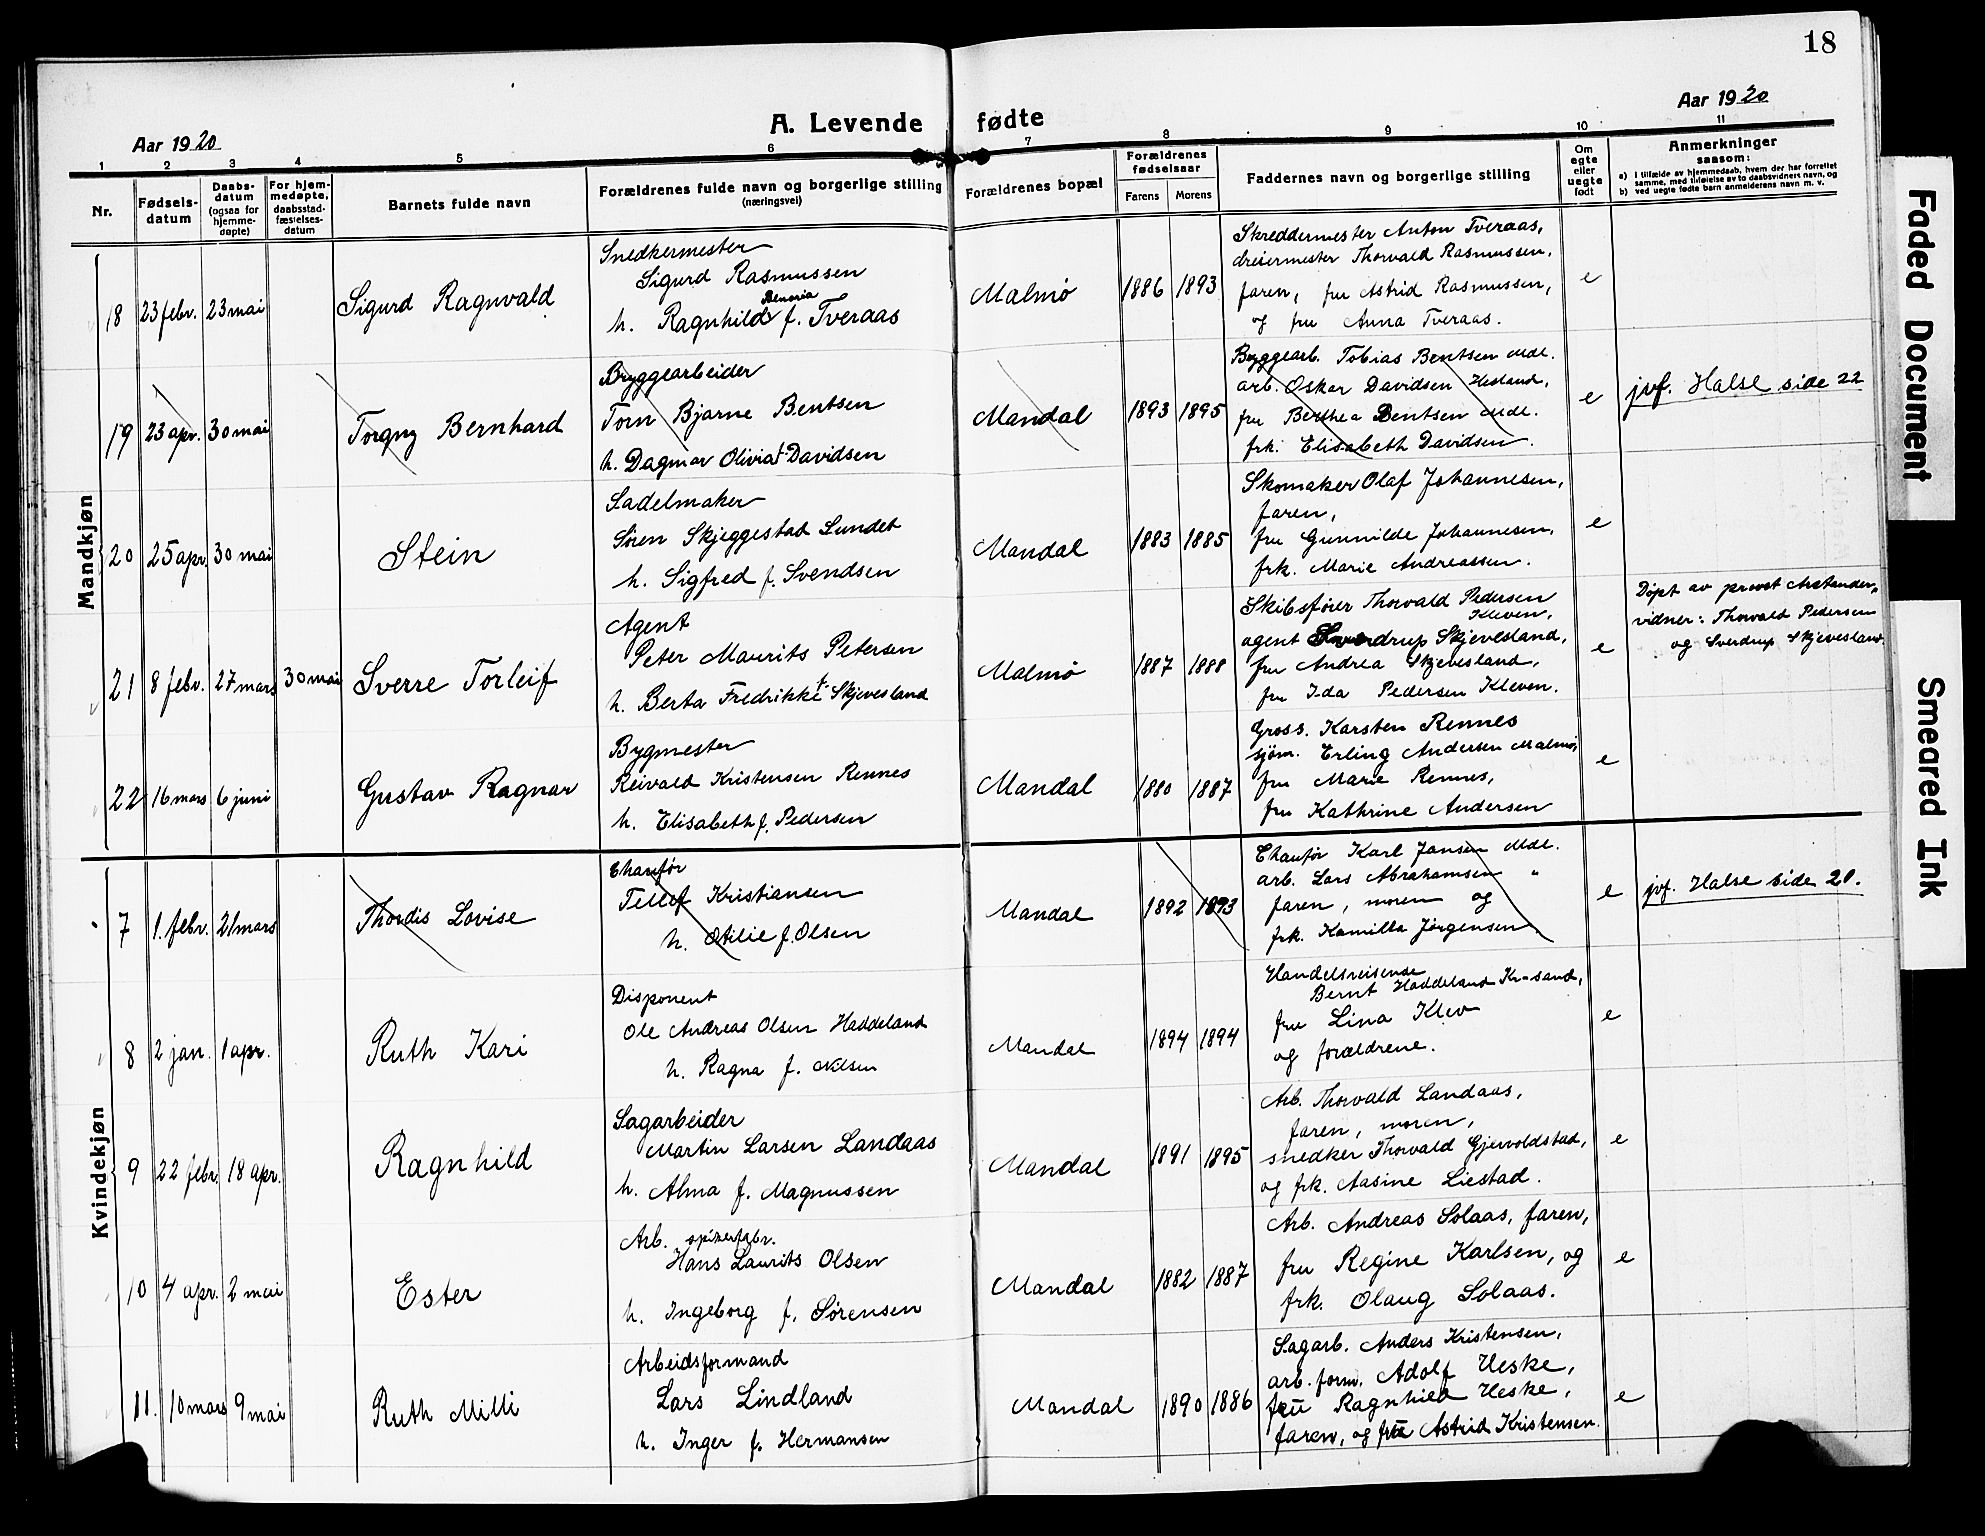 18
Aar 1920
A. Levende fødte
Aar 1920
1 2 3 4 5 6 7 8 9 10 11
Nr.
Fødsels-
datum
Daabs-
datum
(ogsaa for
hjemme-
døpte)
For hjem-
medøpte,
daabsstad-
fæstelses-
datum
Barnets fulde navn
Forældrenes fulde navn og borgerlige stilling
(næringsvei)
Forældrenes bopæl
Forældrenes
fødselsaar
Farens Morens
Faddernes navn og borgerlige stilling
Om
egte
eller
uegte
født
Anmerkninger
saasom:
a) I tilfælde av hjemmedaab, hvem der har forrettet
samme, med tilføielse av to daabsvidners navn, og
b) ved uegte fødte barn anmelderens navn m. v.
Mandkjøn
18 23 febr. 23 mai
Sigurd Ragnvald
Snedkermester
Sigurd Rasmussen
h. Ragnhild f. Tveraas
Malmø
1886 1893
Skreddermester Anton Tveraas,
dreiermester Thorvald Rasmussen,
faren, fru Astrid Rasmussen,
og fru Anna Tveraas.
e
19 23 apr. 30 mai
Torgny Bernhard
Bryggearbeider
Tom Bjarne Bentsen
h. Dagmar Olivia f. Davidsen
Mandal
1893 1895
Byggearb. Tobias Bentsen Mdl.
arb. Oskar Davidsen Hesland,
fru Berthea Bentsen Mdl.
frk. Elisabeth Davidsen.
e
jvf. Halse side 22
20 25 apr. 30 mai
Stein
Sadelmaker
Søren Skjeggestad Lundet
h. Sigfred f. Svendsen
Mandal
1883 1885
Skomaker Olaf Johannesen,
faren,
fru Gunnilde Johannesen,
frk. Marie Andreassen.
e
21 8 febr. 27 mars 30 mai
Sverre Torleif
Agent
Peter Maurits Petersen
h. Berta Fredrikke f. Skjevesland
Malmø
1887 1888
Skibsfører Thorvald Pedersen
Kleven,
agent Sverdrup Skjevesland,
fru Andrea Skjevesland,
fru Ida Pedersen Kleven.
e
Døpt av provst
vidner: Thorvald Pedersen
og Sverdrup Skjevesland.
22 16 mars 6 juni
Gustav Ragnar
Bygmester
Reivald Kristensen Rennes
h. Elisabeth f. Pedersen
Mandal
1880 1887
Gross. Karsten Rennes
sjøm. Erling Andersen Malmø,
fru Marie Rennes,
fru Kathrine Andersen
e
Kvindekjøn
7 1. febr. 21 mars
Thordis Lovise
Chauför
Tellef Kristiansen
h. Otilie f. Olsen
Mandal
1892 1893
Chauför Karl Jansen Mdl.
arb. Lars Abrahamsen "
faren, moren og
frk. Kamilla Jørgensen.
e
jvf. Halse side 20.
8 2 jan. 1 apr.
Ruth Kari
Disponent
Ole Andreas Olsen Haddeland
h. Ragna f. Nilsen
Mandal
1894 1894
Handelsreisende
Bernt Haddeland Kr-sand,
fru Lina Klev
og forældrene.
e
9 22 febr. 18 apr.
Ragnhild
Sagarbeider
Martin Larsen Landaas
h. Alma f. Magnussen
Mandal
1891 1895
Arb. Thorvald Landaas,
faren, moren,
snedker Thorvald Gjervoldstad,
og frk. Aasine Liestad.
e
10 4 apr. 2 mai
Ester
Arb.
Hans Laurits Olsen
h. Ingeborg f. Sørensen
Mandal
1882 1887
Arb. Andreas Solaas, faren,
fru Regine Karlsen, og
frk. Olaug Solaas.
e
11. 10 mars 9 mai
Ruth Milli
Arbeidsformand
Lars Lindland
h. Inger f. Hermansen
Mandal
1890 1886
Sagarb. Anders Kristensen,
arb. form. Adolf Heske,
fru Ragnhild Heske,
faren, og fru Astrid Kristensen.
e
Faded Document
Smeared Ink